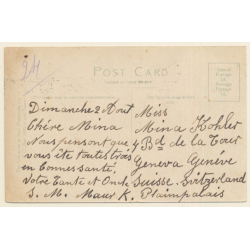 24
POST CARD
Dimanche 2 Aout
Chére Mina
Nous pensont que
vous éte toutes trois
en bonnes santé.
Votre Tante et Oncle
J. M. Maur K.
Miss
Mina Kohler
4 Bd de la Tour
Geneva Geneve
Suisse. Switzerland
Plainpalais